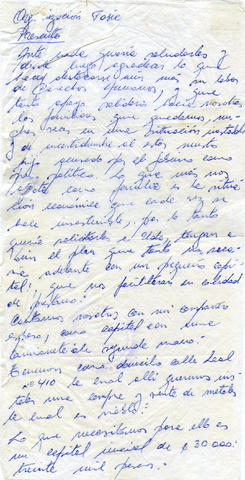 Organización Fasic
Presente
Ante nada quería saludarlos y
desde luego agradecer lo que
hacen
de Derechos Humanos, y que
tanto apoyo solidario hacia nosotros
los familiares que quedamos
en una situación inestable
y de incertidumbre al estar nuestro
hijo por el fascismo como
preso político. Lo que más nos
como familia es la situa-
ción económica que cada vez se
hace insostenible, por lo tanto
quería solicitarle a Uds. tengan a
bien el plan que tanto nos
adelante con un pequeño capi-
tal, que nos facilitaran en calidad
de préstamo.
Contamos nosotros con mi compañero
esposo, como capital con una
camioneta de segunda mano.
Tenemos como domicilio calle Leal
No 410 la cual allí queremos ins-
talar una compra y venta de metales
la cual es mixta:
Lo que necesitamos para ello es
un capital inicial de $ 30.000:
treinta mil pesos.